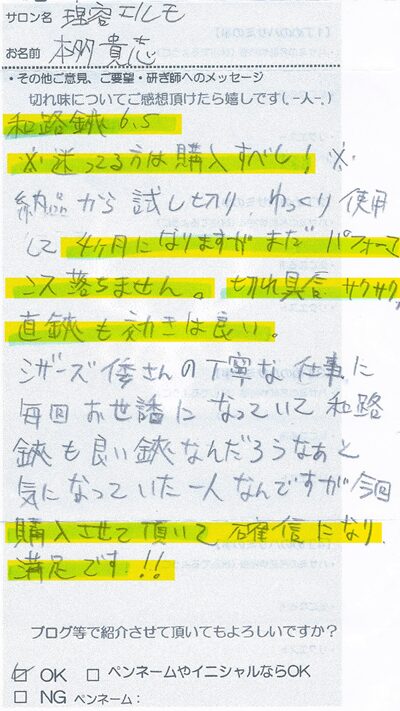 サロン名 理容エルモ
お名前 本多貴志
・その他ご意見、ご要望・研ぎ師へのメッセージ
切れ味についてご感想頂けたら嬉しです(.-人-.)
和路鋏 6.5
※迷ってる方は購入すべし！※
納品から試し切り ゆっくり使用
して4ヶ月になりますがまだパフォーマ
ンス落ちません。切れ具合サクサク
直鋏も効きは良い。
シザーズ倭さんの丁寧な仕事に
毎回お世話になっていて和路
鋏も良い鋏なんだろうなぁと
気になっていた一人なんですが今回
購入させて頂いて確信になり
満足です!!
ブログ等で紹介させて頂いてもよろしいですか？
☑ OK □ ペンネームやイニシャルならOK
□ NG ペンネーム：